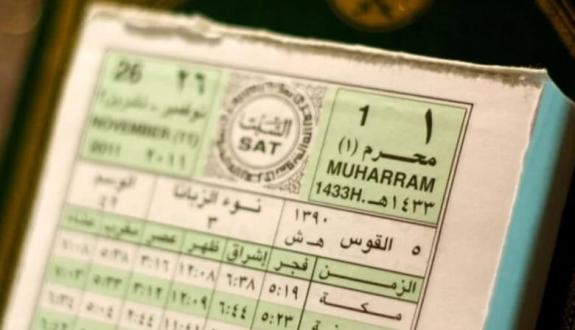 ١ 1 السبت ٢٦ 26
محرم (١) SAT نوفمبر - تشرين ٢
MUHARRAM NOVEMBER (11)
1433H. ١٤٣٣هـ ٢٠١١ 2011
٥ القوس ١٣٩٠ هـ ش نوء الزبانا ٣ الوسم ٤٢
الزمن فجر إشراق ظهر عصر مغرب عشاء
مكة ٥:١٩ ٦:٣٨ ١٢:٠٨ ٣:١٦ ٥:٣٨ ٧:٠٨
٥:٢٣ ٦:٤٤ ١٢:٠٩ ٣:١٢ ٥:٣٣ ٧:٠٣
٥:٠٤ ٦:٣٤